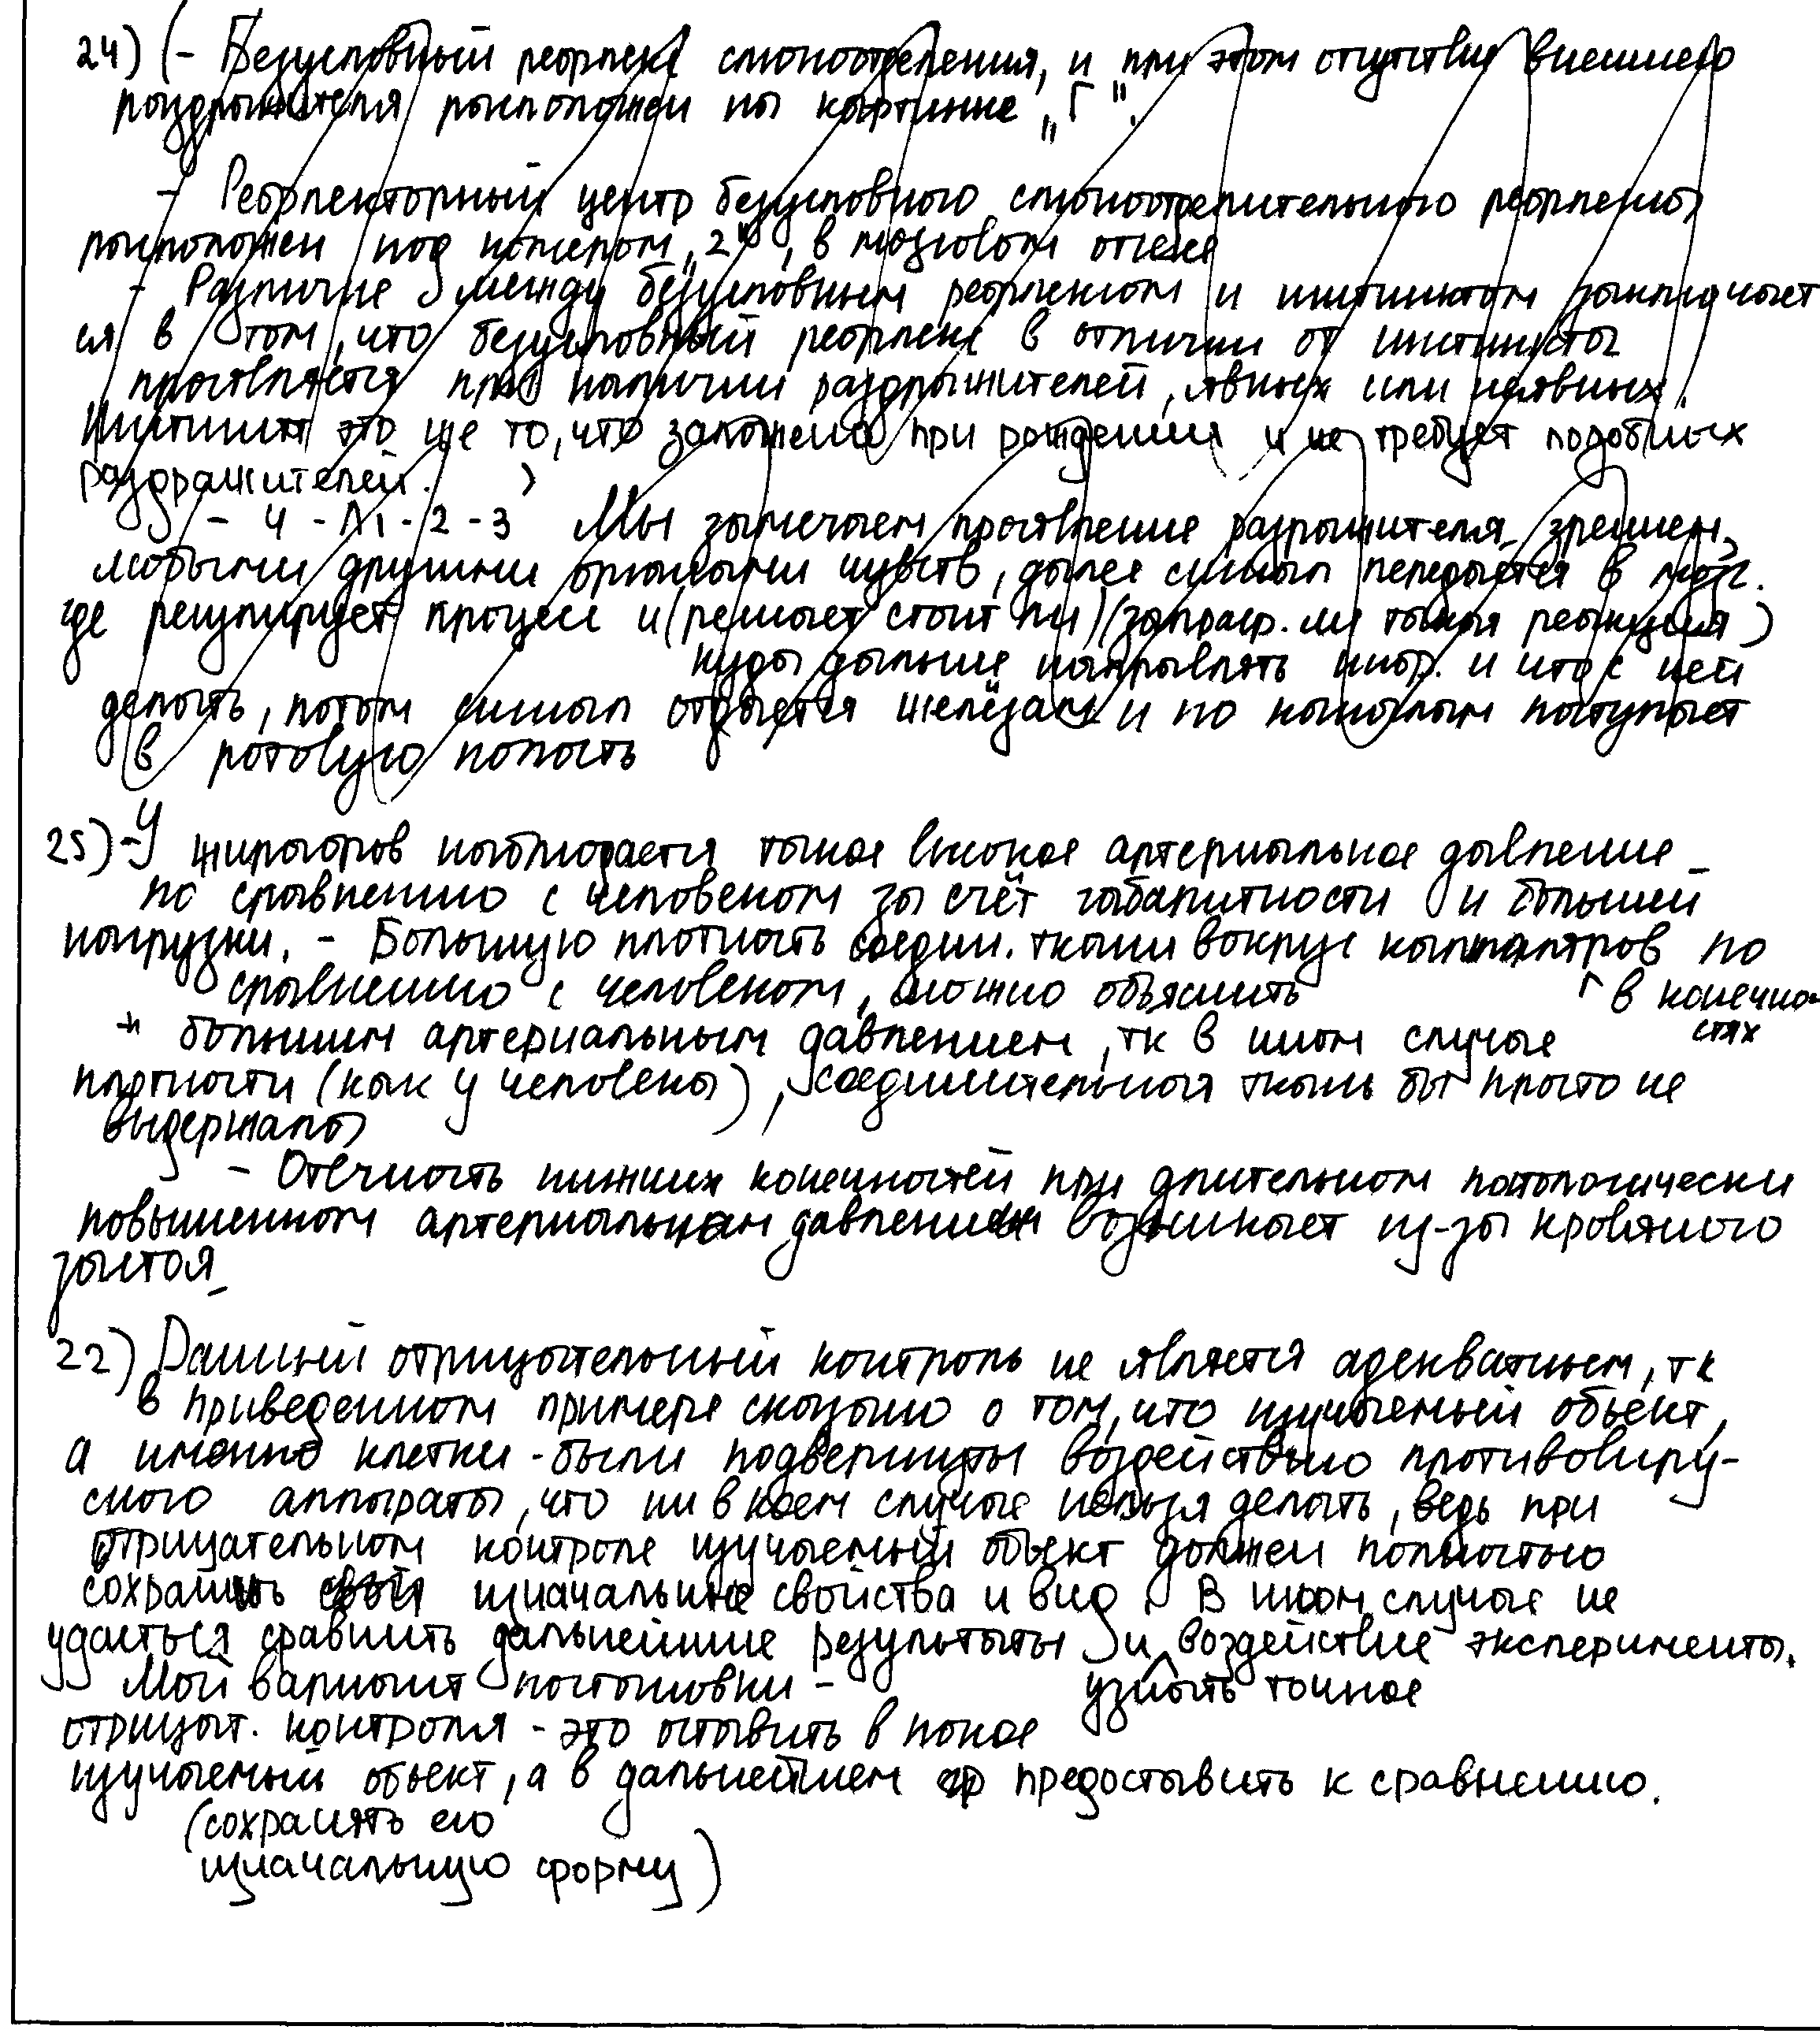 24) (- Безусловный рефлекс слюноотделения, и при этом отсутствии внешнего
раздражителя расположен на картинке „Г".
- Рефлекторный центр безусловного слюноотделительного рефлекса
расположен под номером „2", в мозговом отделе
- Различие между безусловным рефлексом и инстинктом заключает
ся в том, что безусловный рефлекс в отличии от инстинкта
проявляется при наличии раздражителей, явных или неявных.
Инстинкт это же то, что заложено при рождении и не требует подобных
раздражителей. )
- 4 - 1 - 2 - 3 Мы замечаем проявление раздражителя зрением,
любыми другими органами чувств, далее сигнал передается в мозг.
где регулирует процесс и (решает стоит ли) (запрогр. ли такая реакция)
куда дальше направлять инф. и что с ней
делать, потом сигнал отдается железам и по каналам поступает
в ротовую полость
25) - У жирафов наблюдается такое высокое артериальное давление
по сравнению с человеком за счёт габаритности и большей
нагрузки. - Большую плотность соедин. ткани вокруг капилляров по
сравнению с человеком, можно объяснить Г в конечно-
стях
большим артериальным давлением, тк в ином случае
плотности (как у человека), соединительная ткань бы просто не
выдержала
- Отечность нижних конечностей при длительном патологически
повышенном артериальном давлении возникает из-за кровяного
застоя
22) Данный отрицательный контроль не является адекватным, тк
в приведенном примере сказано о том, что изучаемый объект,
а именно клетки - были подвергнуты воздействию противовиру-
сного аппарата, что ни в коем случае нельзя делать, ведь при
отрицательном контроле изучаемый объект должен полностью
сохранить свои изначальные свойства и вид. В ином случае не
удасться сравнить дальнейшие результаты и воздействие эксперимента.
Мой вариант постановки - узнать точное
отрицат. контроля - это оставить в покое
изучаемый объект, а в дальнейшем предоставить к сравнению.
(сохранять его
изначальную форму)